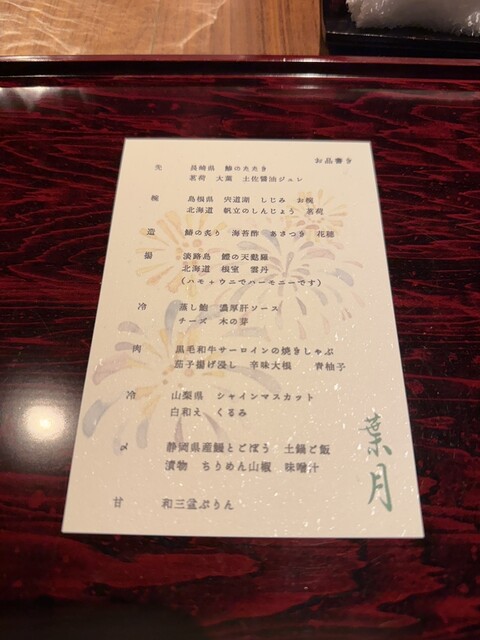 お品書き
先 長崎県 鯵のたたき
茗荷 大葉 土佐醤油ジュレ
椀 島根県 宍道湖 しじみ お椀
北海道 帆立のしんじょう 茗荷
造 鰆の炙り 海苔酢 あさつき 花穂
揚 淡路島 鱧の天麩羅
北海道 根室 雲丹
(ハモ+ウニでハーモニーです)
冷 蒸し鮑 濃厚肝ソース
チーズ 木の芽
肉 黒毛和牛サーロインの焼きしゃぶ
茄子揚げ浸し 辛味大根 青柚子
冷 山梨県 シャインマスカット
白和え くるみ
〆 静岡県産鰻とごぼう 土鍋ご飯
漬物 ちりめん山椒 味噌汁
甘 和三盆ぷりん
葉月